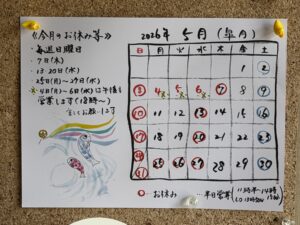 《今月のお休み等》
・毎週日曜日
・7日(木)
・13・20日(水)
・25日(月)〜
※4日(月)〜6日(水)は午後も
営業します(18時〜)
お願いします
2026年 5月 (皐月)
日 月 火 水 木 金 土
1 2
3 4 5 6 7 8 9
10 11 12 13 14 15 16
17 18 19 20 21 22 23
24 25 26 27 28 29 30
31
○…お休み ○…半日営業 (11時半〜14時